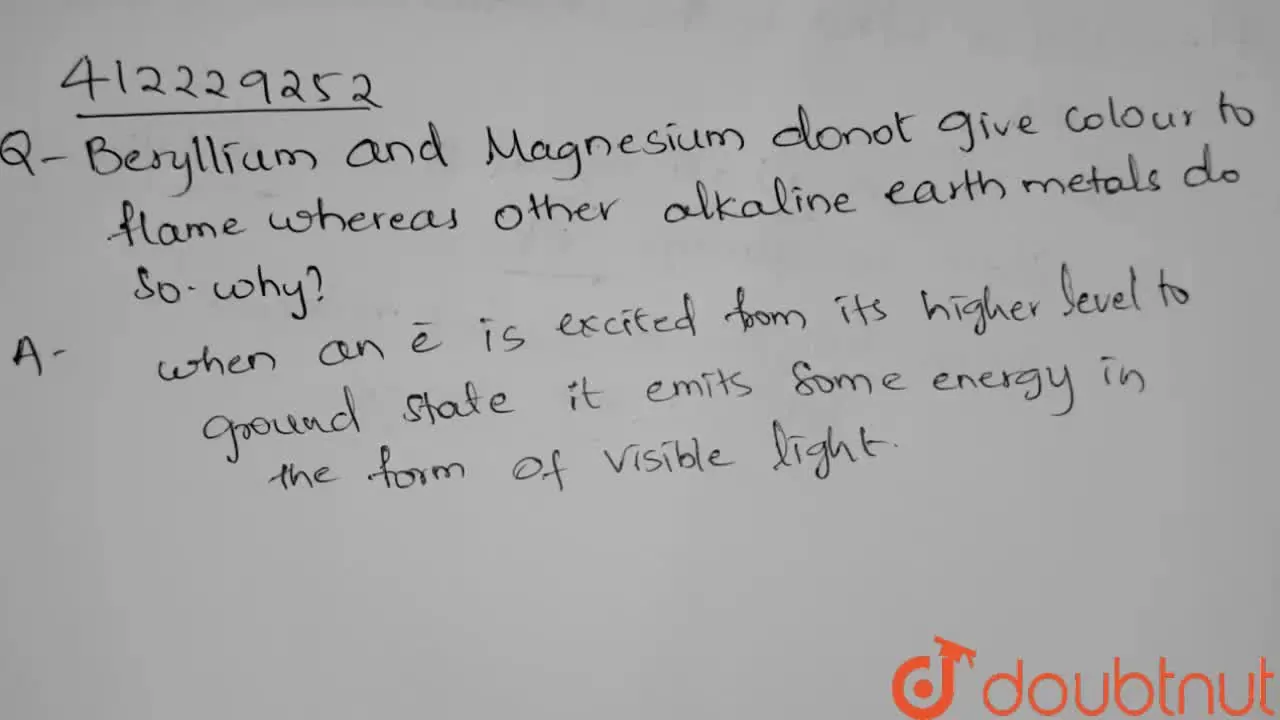 412229252
Q- Beryllium and Magnesium donot give colour to
flame whereas other alkaline earth metals do
so. why?
A- when an ē is excited from its higher level to
ground state it emits some energy in
the form of visible light.
doubtnut